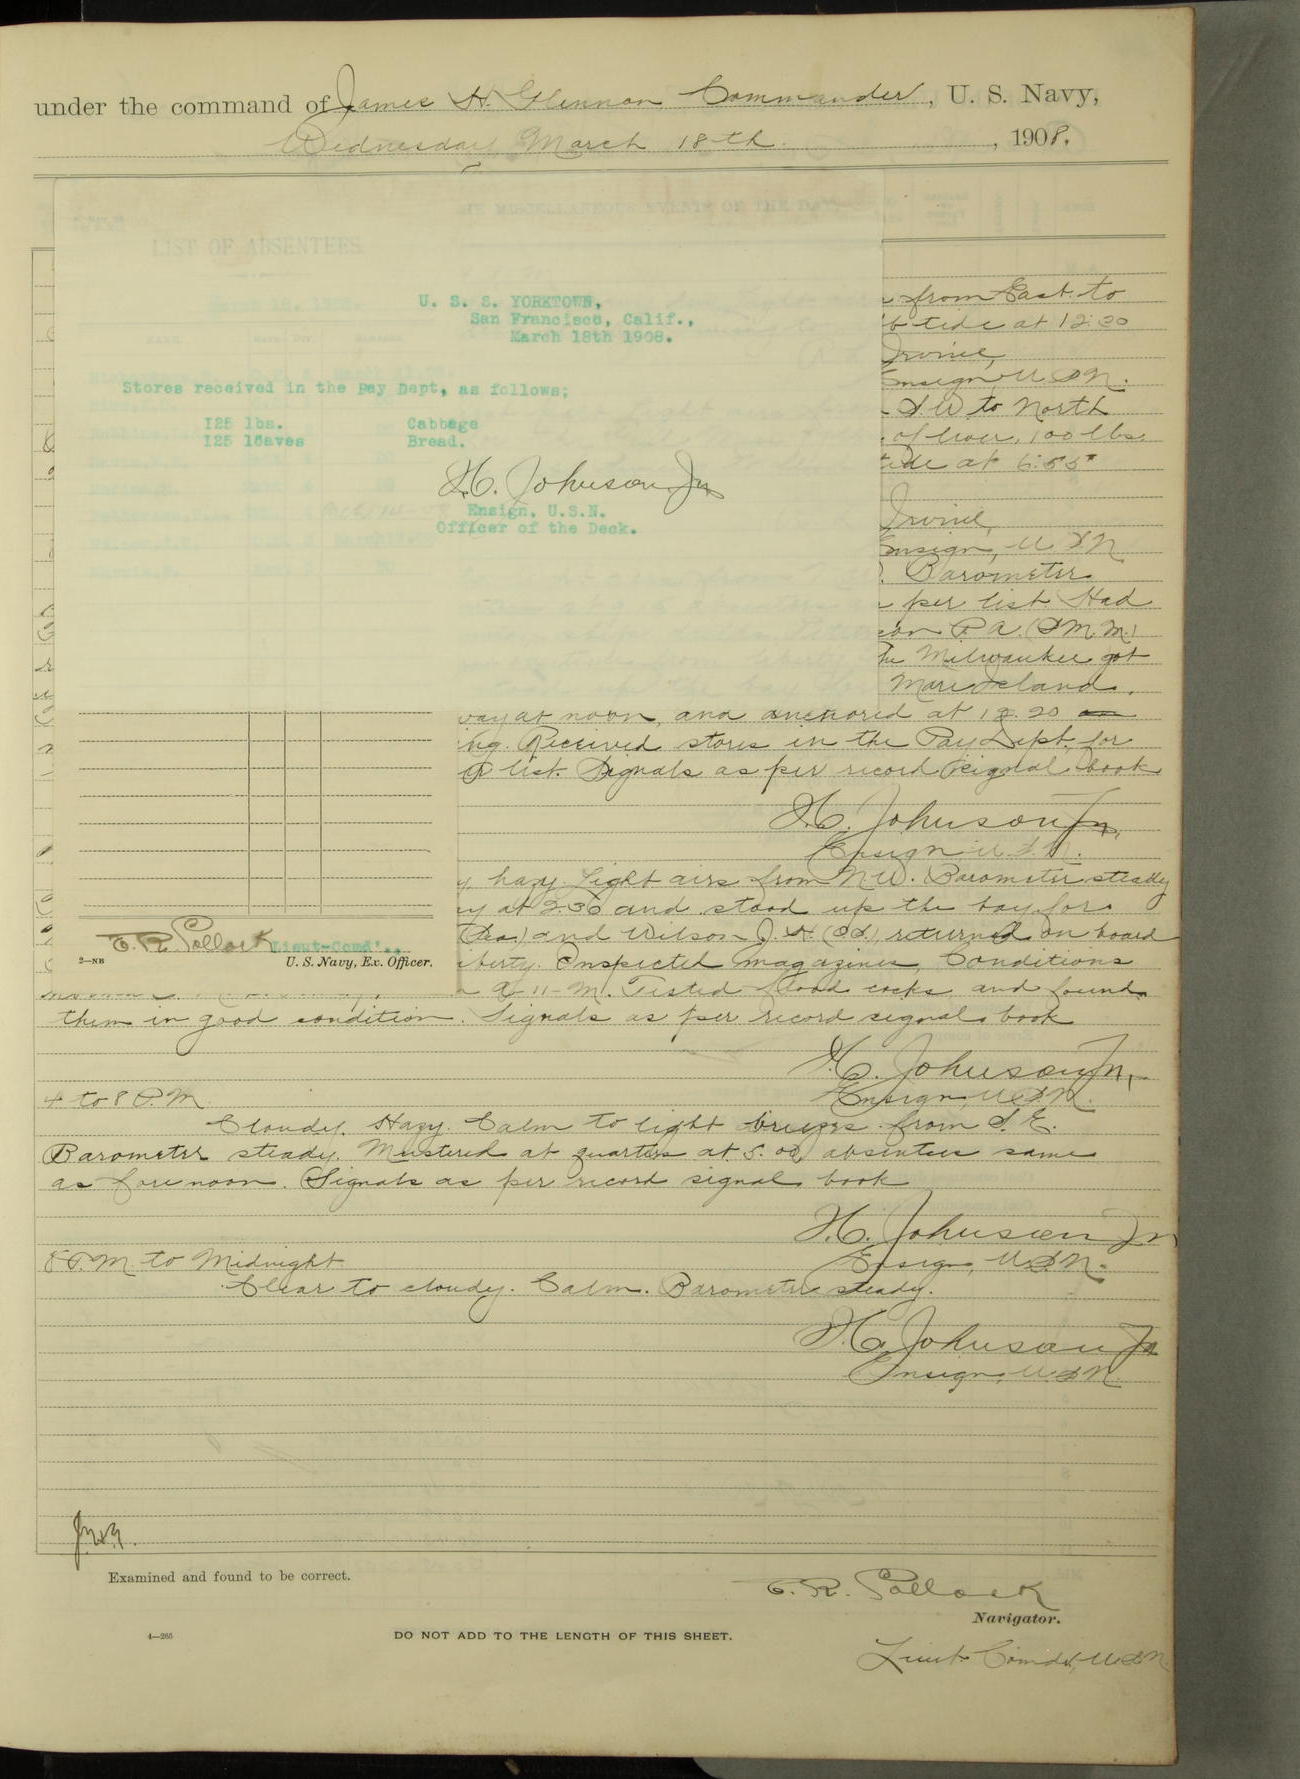 under the command of James H. Glennon Commander, U. S. Navy,
Wednesday March 18th, 1908.
LIST OF ABSENTEES.
U. S. S. YORKTOWN,
San Francisco, Calif.,
March 18th 1908.
Stores received in the Pay Dept, as follows;
I25 lbs. Cabbage
I25 loaves Bread.
H. Johnson Jr
Ensign, U.S.N.
Officer of the Deck.
from East to
tide at 12:30
Irvine,
Ensign, U.S.N.
S.W to North
of liver, 100 lbs.
tide at 6:55
Irvine,
Ensign, U.S.N
Barometer
per list. Had
P.A. (S.M.M.)
The Milwaukee got
Mare Island.
way at noon, and anchored at 12.20
Received stores in the Pay Dept. for
list. Signals as per record signal book
H. Johnson Jr.,
Ensign U.S.N.
hazy. Light airs from N.W. Barometer steady
at 2:36 and stood up the bay for
(Sea.) and Wilson J.H. (O.S.) returned on board
liberty. Inspected magazines, Conditions
Tested flood cocks and found
them in good condition. Signals as per record signal book
H. Johnson Jr.,
Ensign, U.S.N.
4 to 8 P.M.
Cloudy. Hazy. Calm to light breezes from S.E.
Barometer steady. Mustered at quarters at 5.00, absentees same
as forenoon. Signals as per record signal book
H. Johnson Jr
Ensign, U.S.N.
8 P.M. to Midnight
Clear to cloudy. Calm. Barometer steady.
H. Johnson Jr
Ensign, U.S.N.
E. R. Pollock Lieut-Comd'.,
2—NB U. S. Navy, Ex. Officer.
J.H.G.
Examined and found to be correct.
E. R. Pollock
Navigator.
4—265
DO NOT ADD TO THE LENGTH OF THIS SHEET.
Lieut. Comdr, U.S.N.